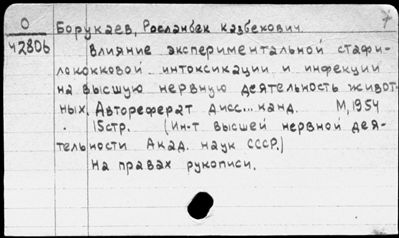 О Борукаев, Росланбек Казбекович 7
ч2806 Влияние экспериментальной стафи-
лококковой интоксикации и инфекции
на высшую нервную деятельность живот-
ных. Автореферат дисс... канд. М, 1954
15стр. (Ин-т высшей нервной дея-
тельности Акад. наук СССР.)
На правах рукописи.